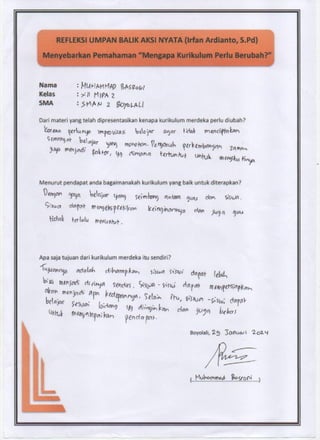 REFLEKSI UMPAN BALIK AKSI NYATA (Irfan Ardianto, S.Pd)
Menyebarkan Pemahaman "Mengapa Kurikulum Perlu Berubah?"
Nama : MUHAMMAD BASROWI
Kelas : XII MIPA 2
SMA : SMAN 2 BOYOLALI
Dari materi yang telah dipresentasikan kenapa kurikulum merdeka perlu diubah?
karena perlunya improvisasi belajar agar tidak menciptakan
semangat belajar yang monoton. Pengaruh perkembangan zaman
juga menjadi faktor, yg dimana tertuntut untuk mengikutinya
Menurut pendapat anda bagaimanakah kurikulum yang baik untuk diterapkan?
Dengan gaya belajar yang seimbang antara guru dan siswa.
Siswa dapat mengekspresikan keinginannya dan juga guru
tidak terlalu menuntut.
Apa saja tujuan dari kurikulum merdeka itu sendiri?
Tujuannya adalah diharapkan siswa siswi dapat lebih
bisa menjadi dirinya sendiri. Siswa - siswi dapat mempersiapkan
akan menjadi apa kedepannya. Selain itu, siswa - siswi dapat
belajar sesuai bidang yg diinginkan dan juga bebas
untuk menyampaikan pendapat.
Boyolali, 29 Januari 2024
( Muhammad Basrowi )